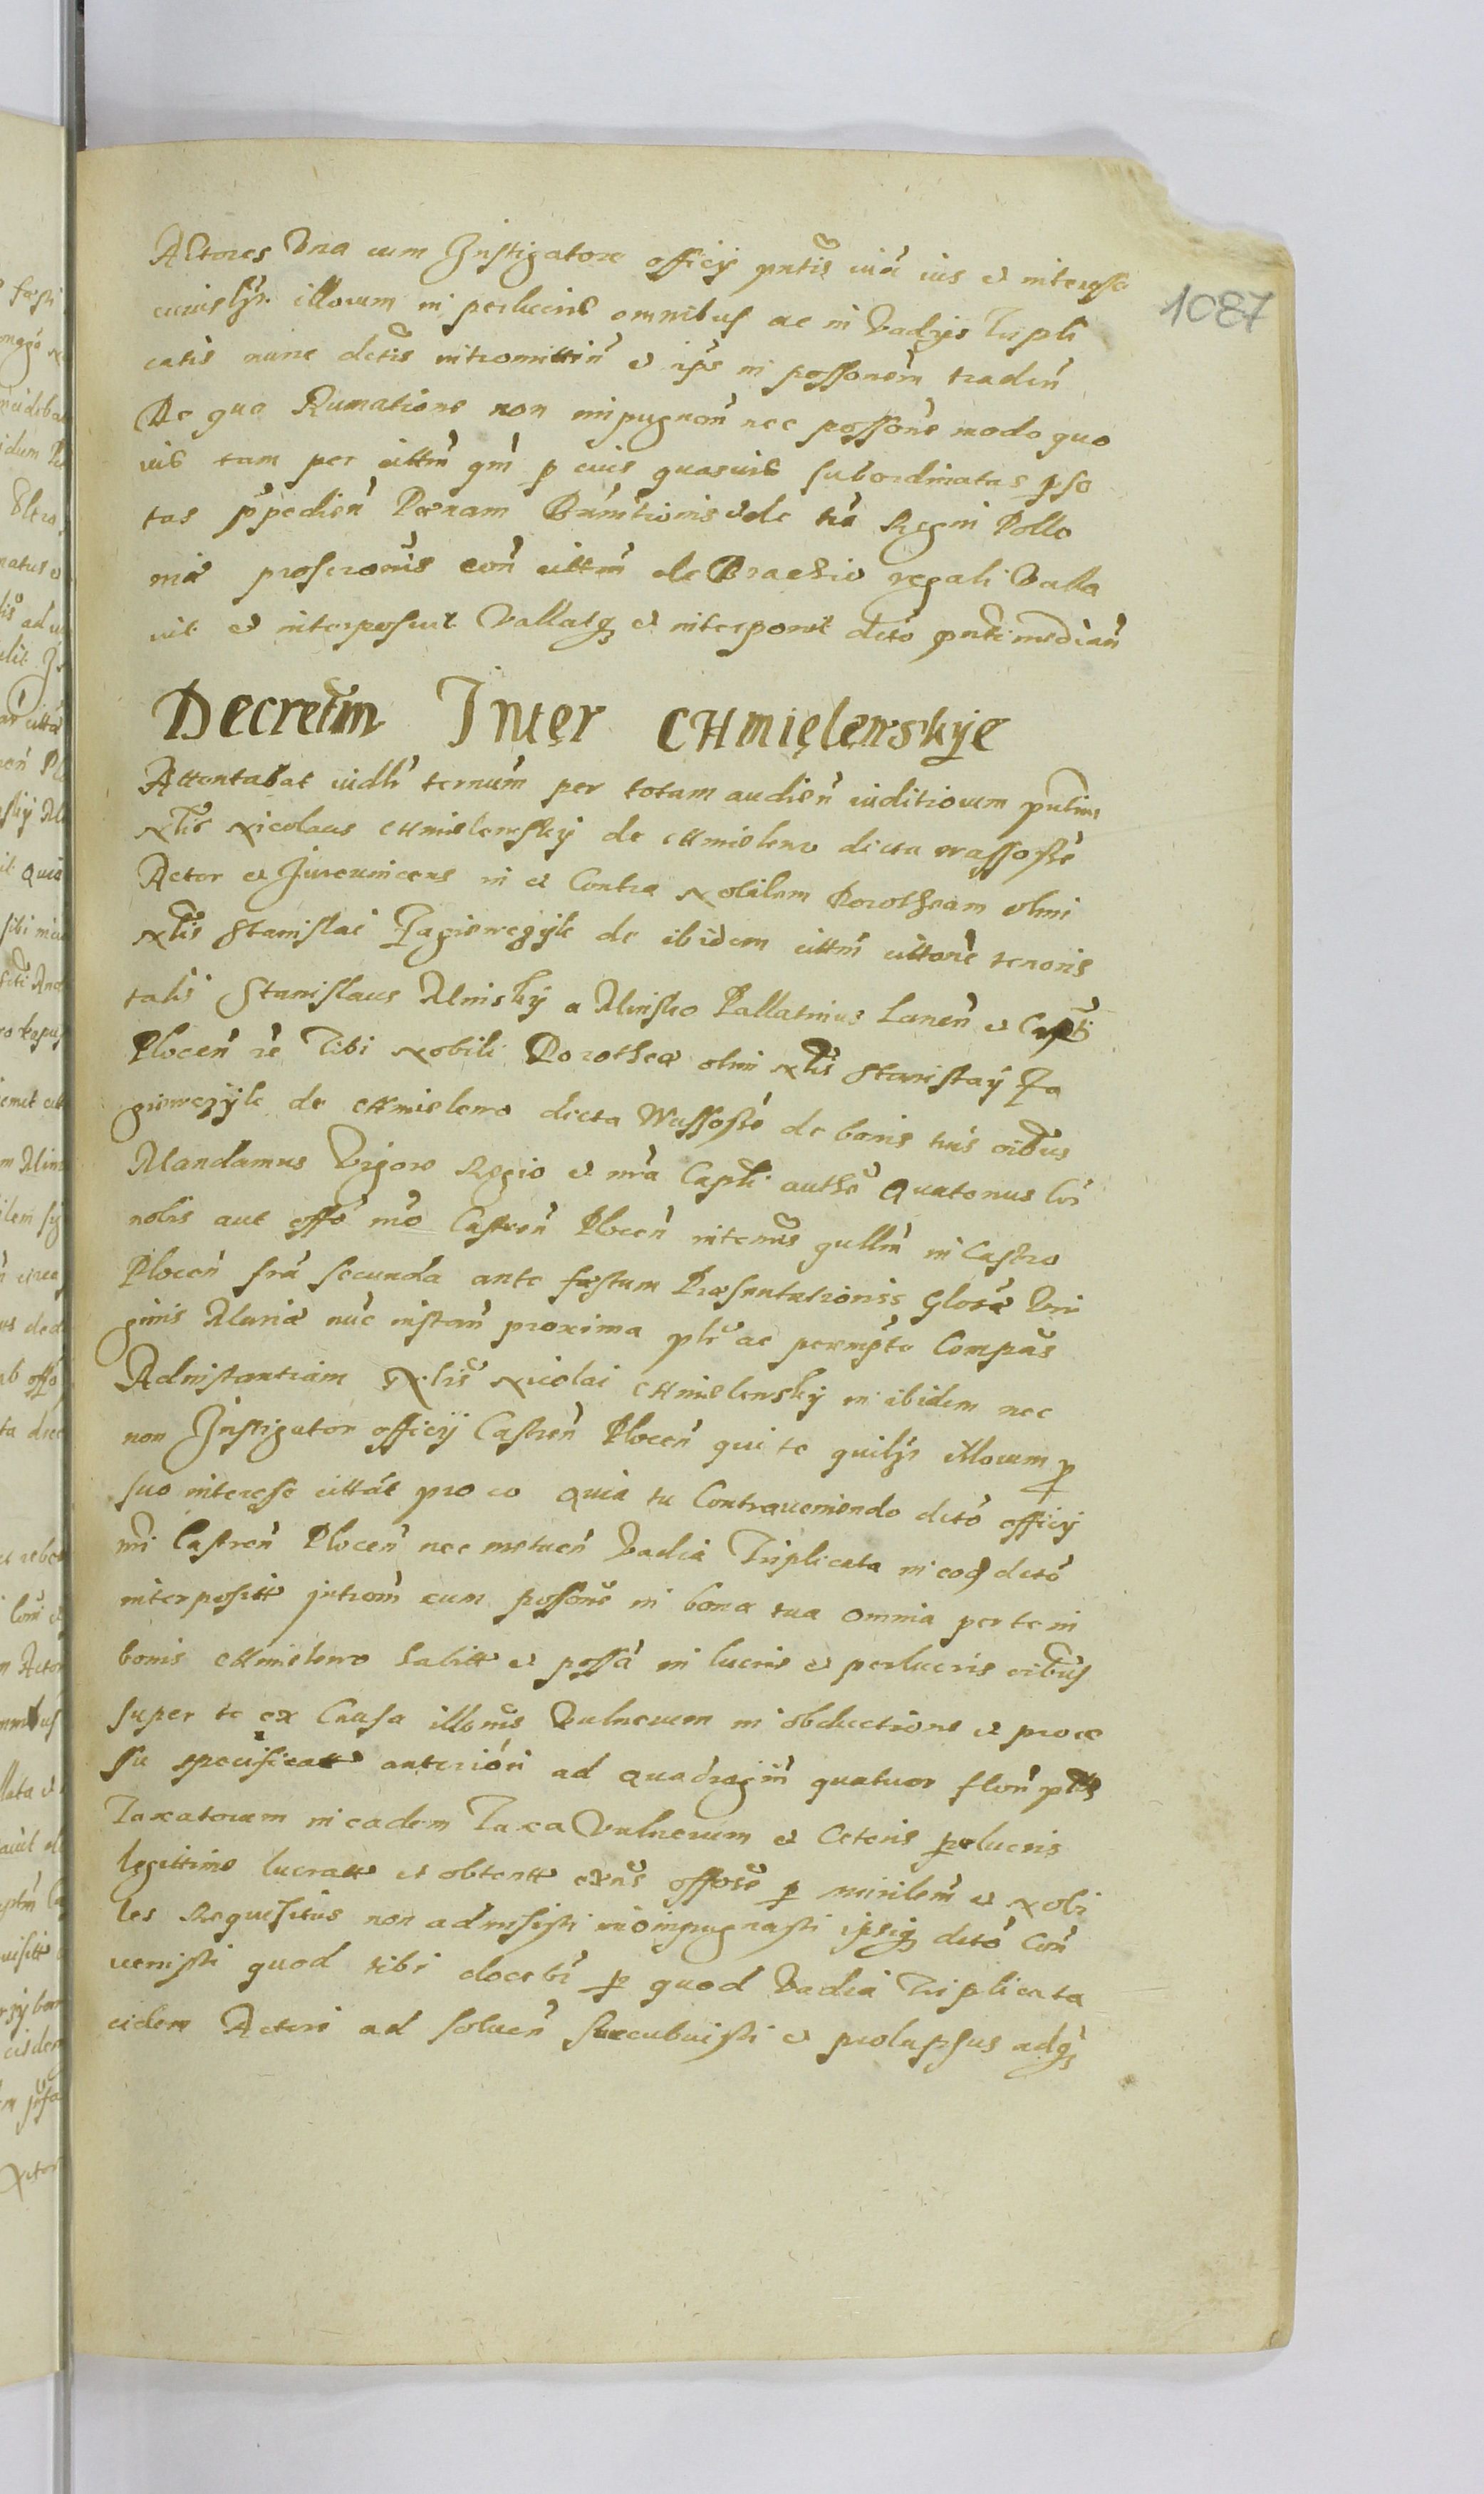 Actores Vna cum Instigatore officÿ pntis iux ius et interesse
cuiuslbt illorum in perlucris omnibus ac in Vadÿs Tripli
catis nunc dctis intromittin et ips in possonem traden
De qua Rumatione non impugnan nec possone modo quo
vis tam per cittm qm p eius quasuis subordinatas pso
nas ppedien Pœnam Bannitionis et de tra Regni Pollo
niæ proscronis con cittm de Braclio regali Valla
uit et interposuit Vallatq et interponit dcto pnti median
Decretm Inter CHmielewskÿe
Attentabat iudlr ternum per totam audien iuditiorum pntium
Nlis Nicolaus CHmielewskÿ de CHmielewo dicta Wassosse
Actor et Iureuincens in et Contra Nobilem Dorotheam olim
Nlis Stanislai de ibidem cittm cittone tenoris
talis Stanislaus Minskÿ a Minsko Pallatinus Lancn et Captls
Plocen re Tibi Nobili Dorotheæ olim Nlis Stanislaÿ
de CHmielewo dicta Wassosse de bonis tuis oibus
Mandamus Vigore Regio et nra Capli authe Quatenus cor
nobis aut offo nro Castren Plocen intenus qullm in Castro
Plocen fria secunda ante festum Præsentationis Glosæ Vir
ginis Mariæ nunc instan proxima plr ac perempto Compas
Adinstantiam Nlis Nicolai CHmielewskÿ in ibidem nec
non Instigator officÿ Castren Plocen qui te quilbt illorum p
suo interesse cittat pro eo Quia tu Contraueniendo dcto officÿ
nri Castren Plocen nec metuen Vadia Triplicata in eod dcto
interpositt introm cum possone in bona tua omnia per te in
bonis CHmielewo habitt et possa in lucris et perlucris oibus
super te ex Causa illonis Vulnerum in obductione et proce
ssu specificatt anteriori ad Quadragin quatuor flon plls
Taxatorum in eadem Taxa Vulnerum et Ceteris perlucris
legittime lucratt et obtentt offose p minilem et Nobi
les Requisitus non admisisti imo impugnasti ipsiq dcto Con
uenisti quod tibi docebr p quod Vadia Triplicata
eidem Actori ad soluen succubuisti et prolapsus adq
1087